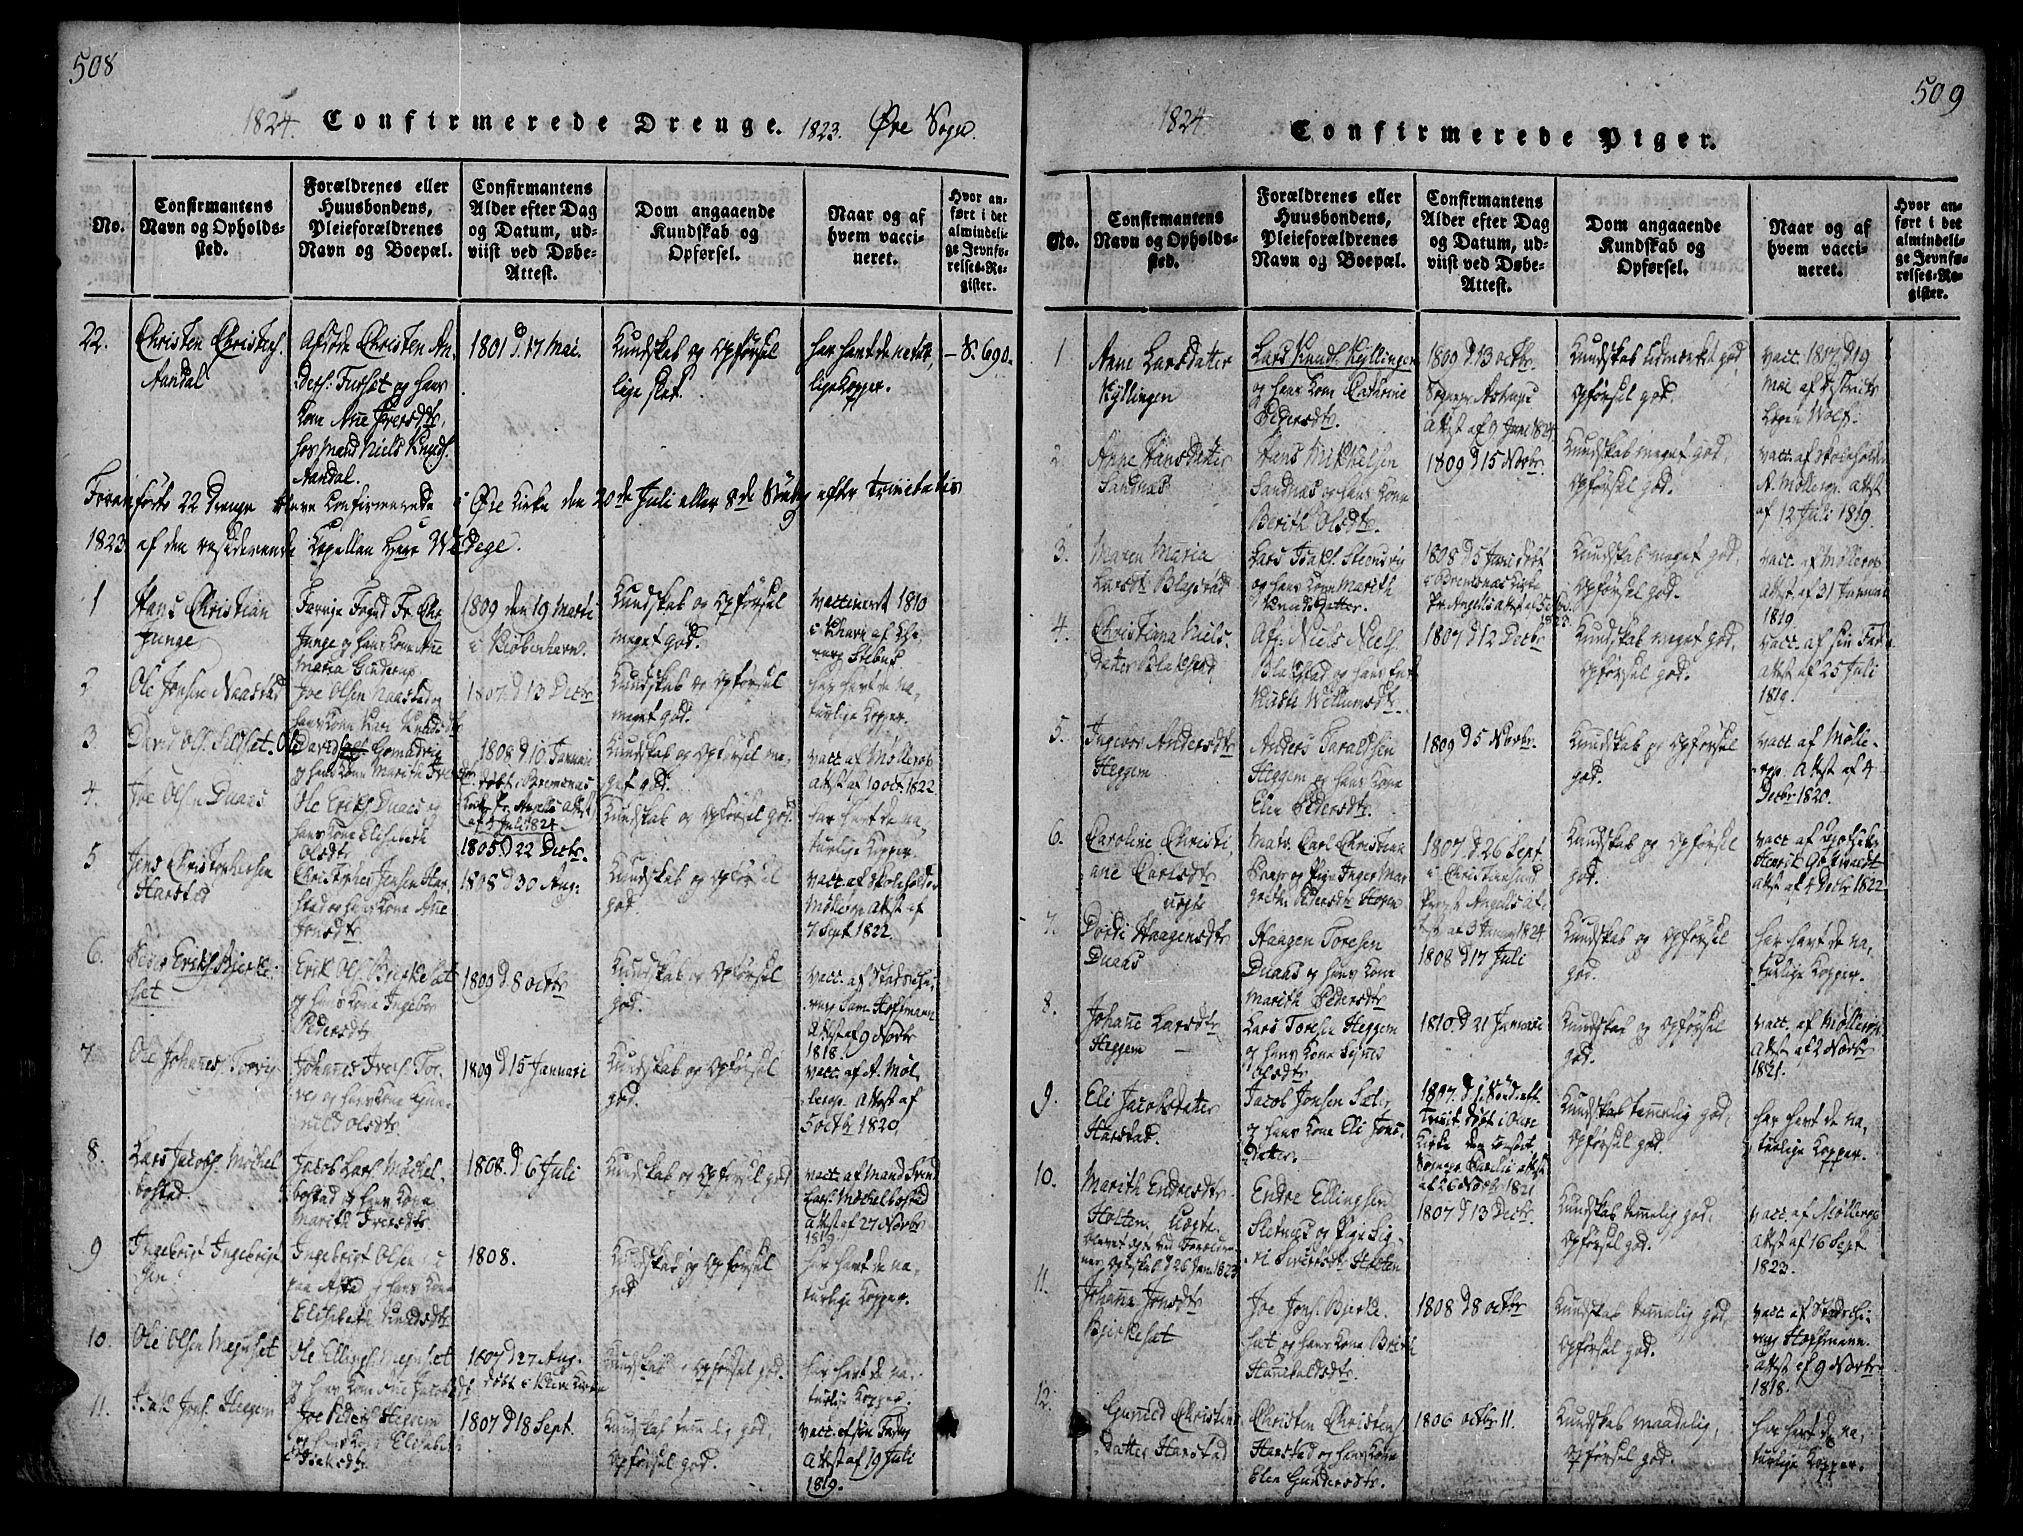 508
1824. Confirmerede Drenge. 1823. Øre Sogn.
No.
Confirmantens
Navn og Opholds-
sted.
Forældrenes eller
Huusbondens,
Pleieforældrenes
Navn og Boepæl.
Confirmantens
Alder efter Dag
og Datum, ud-
viist ved Døbe-
Attest.
Dom angaaende
Kundskab og
Opførsel.
Naar og af
hvem vacci-
neret.
Hvor an-
ført i det
almindeli-
ge Jevnfø-
relses-Re-
gister.
22.
Christen Christens.
Aandal
Afdøde Christen An-
ders. Furset og hans
Kone Ane Iversdtr.
hos Mand Niels Knuds.
Aandal.
1801 d. 17 Mai.
Kundskab og Opførsel
lige slet.
har havt de natur-
lige Kopper.
S. 690.
Foranførte 22 Drenge bleve Confirmerede i Øre Kirke den 20de Juli eller 8de Søndag efter Trinitatis
1823 af den residerende Capellan Herr
1
Hans Christian
Junge
Junge og hans Kone Ane
Maria
1809 den 19 Martii
i Kiøbenhavn.
Kundskab og Opførsel
meget god.
vaccineret 1810
2
Ole Jonsen Naastad
Joe Olsen Naastad og
hans Kone Kari Knudsdtr
1807. d. 13 Decbr
Kundskab og Opførsel
meget god.
har havt de na-
turlige Kopper.
3
David Ols.
og hans Kone Marith
1808 d. 10. Januarii
døbt i Bremsnæs
Kirke Pr. Angells Attest
af 4 Juli 1824.
Kundskab og Opførsel me-
get god.
vacc. af Møllerop
Attest af 19 oct. 1822.
4.
Joe Olsen Duaas
Ole Eriks. Duaas og
hans Kone Elisabeth
Olsdtr
1805. d. 22 Decbr.
Kundskab og Opførsel god.
har havt de na-
turlige Kopper.
5
Jens Christophersen
Harstad
Christopher Jensen Har-
stad og hans Kone Ane
Jonsdtr
1808 d. 30 Aug:
Kundskab og Opførsel
god.
vacc. af Skoleholder
Møllerop Attest af
7 Sept 1822.
6.
Peder Eriks. Bjerke-
sæt
Erik Ols. Bjerkesæt
og hans Kone Ingebor
Pedersdtr
1809 d. 8 Octbr
Kundskab og Opførsel
god.
vacc. af Stadschi-
rurg Sam. Hoffmann
Attest af 9 Novbr
1818.
7.
Ole Johannes. Torvig
Johannes Ivers. Tor-
vig og hans Kone Gun-
nild Olsdtr.
1809 d. 15 Januarii
Kundskab og Opførsel
god.
vacc. af A. Møl-
lerop Attest af
5 octbr 1820
8.
Lars Jacobs. Møckel-
bostad.
Jacob Lars. Møckel-
bostad og hans Kone
Marith Iversdtr
1808. d. 6 Juli
Kundskab og Opførsel god
vacc. af Mand Sven
Lars. Møckelbostad
Attest af 27 Novbr
1819.
9
Ingebrigt Ingebrigt-
sen
Ingebrigt Olsen
og hans Kone
Elisabeth Knudsdtr
1808.
Kundskab og Opførsel
god
har havt de na-
turlige Kopper.
10.
Ole Olsen Megusset
Ole Ellings. Megusset
og hans Kone Ane Jacobsdtr
1807 d. 27 Aug.
døbt i
Kundskab og Opførsel god.
har havt de na-
turlige Kopper.
11.
Isak Jons. Heggem
Joe Peders. Heggem
og hans Kone Elisabeth
Isaksdtr
1807 d. 18 Sept.
Kundskab temmelig god,
Opførsel god.
vacc. af sin Fader
Attest af 19 Juli
1819.
509
1824 Confirmerede Piger.
No.
Confirmantens
Navn og Opholds-
sted.
Forældrenes eller
Huusbondens,
Pleieforældrenes
Navn og Boepæl.
Confirmantens
Alder efter Dag
og Datum, ud-
viist ved Døbe-
Attest.
Dom angaaende
Kundskab og
Opførsel.
Naar og af
hvem vacci-
neret.
Hvor an-
ført i det
almindeli-
ge Jevnfø-
relses-Re-
gister.
1
Anne Larsdatter
Kyllingen
Lars Knuds. Kyllingen
og hans Kone Cathrine
Pedersdtr.
1809 d. 13 octbr.
Attest af 9 Juni 1824.
Kundskab udmærket god,
Opførsel god.
vacc. 1812 d. 19
Mai af Districts
Lægen Wolf.
2.
Anne Hansdatter
Sandnæs
Hans Mikkelsen
Sandnæs og hans Kone
Berith Olsdtr.
1809 d. 15 Novbr.
Kundskab meget god,
Opførsel god.
vacc. af Skoleholder
A. Møllerop Attest
af 12 Juli 1819.
3.
Maren Maria
Larsdtr Blagstad
og hans Kone Marith
Knudsdatter.
1808 d. 5 Juni døbt
i Bremsnæs Kirke
Kundskab meget god,
Opførsel god.
vacc. af Møllerop
Attest af 31 Januarii
1819.
4.
Christiana Niels-
datter Blakstad
Afg. Niels Niels.
Blakstad og hans
Willumsdtr.
1807 d. 12 Decbr
Kundskab meget god,
Opførsel god.
vacc. af sin Far
Attest af 25 Juli
1819.
5.
Ingebor Andersdtr
Heggem
Anders Taraldsen
Heggem og hans Kone
Elen Pedersdtr.
1809 d. 5 Novbr.
Kundskab og Opførsel
god.
vacc. af Mølle-
rop. Attest af 4
Decbr 1820.
6.
Caroline Christi-
ane Carlsdtr
uægte
Matr. Carl Christian
og Pige Inger Mar-
grethe Pedersdtr
1807 d. 26 Sept
i Christiansund
Provst Angells at-
test af 3 1824
Kundskab og Opførsel
god.
Attest af 4 Decbr 1822
7.
Dordi Haagensdtr
Duaas
Haagen Toresen
Duaas og hans Kone
Marith Pedersdtr
1808 d. 17 Juli
Kundskab og Opførsel
god.
har havt de na-
turlige Kopper.
8.
Johane Larsdtr
Heggem
Lars Toresen Heggem
og hans Kone Signe
Olsdtr
1810. d. 21 Januarii
Kundskab og Opførsel
god.
vacc. af Møllerop
Attest af 2 Novbr
1821.
9.
Eli Jacobsdatter
Harstad.
Jacob Jonsen Sæt-
og hans Kone Eli Jons-
datter.
1807. d. 1 Sønd. eft.
Trinit. døbt i Qure
Kirke
af 26 Novbr 1821
Kundskab temmelig god,
Opførsel god.
har havt de na-
turlige Kopper.
10.
Marith Endresdtr
Holten uægte.
Endre Ellingsen
Sletnes og Pige Sig-
ri Siversdtr Holten
1807 d. 13 Decbr.
Kundskab temmelig god,
Opførsel god.
vacc. af Møllerop
Attest af 16 Sept
1823.
11.
Johane Jonsdtr
Bjerkesæt
Joe Jons. Bjerke-
sæt og hans Kone Berith
Haneboldsdtr.
1808 d. 8 octbr
Kundskab temmelig god,
Opførsel god.
vacc. af Stadschi-
rurg Hoffmann.
Attest af 9 Novbr
1818.
12.
Guned Christens-
datter Harstad
Christen Christens.
Harstad og hans Kone
Elen Gundersdtr.
1806 octbr 11.
Kundskab maadelig,
Opførsel god.
har havt de na-
turlige Kopper.